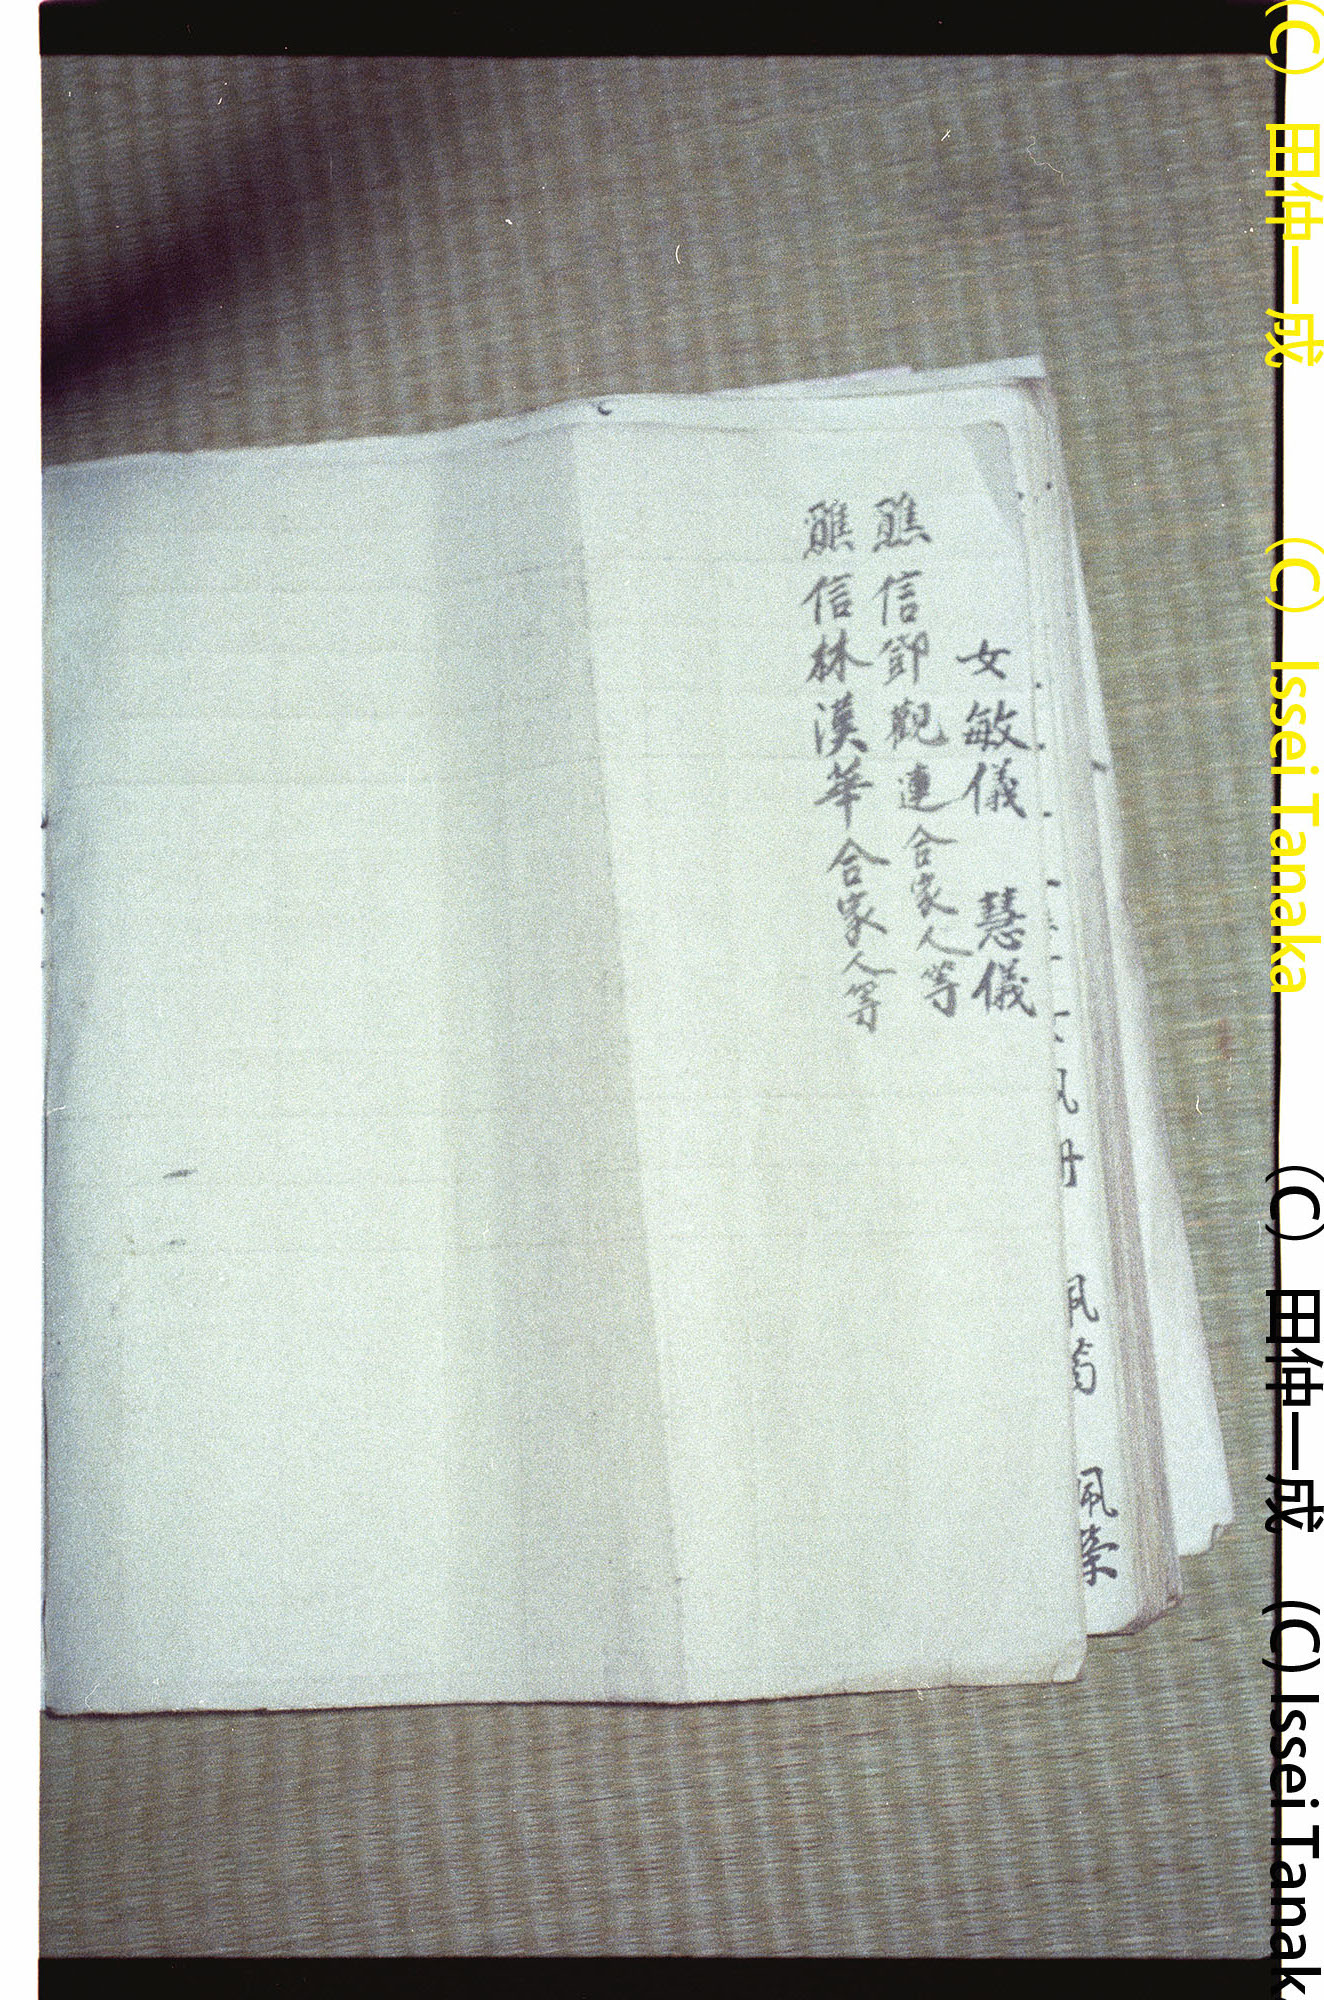 女敏儀 慧儀
醮信鄧觀連合家人等
醮信林漢華合家人等
(C) 田仲一成 (C) Issei Tanaka
(C) 田仲一成 (C) Issei Tanak